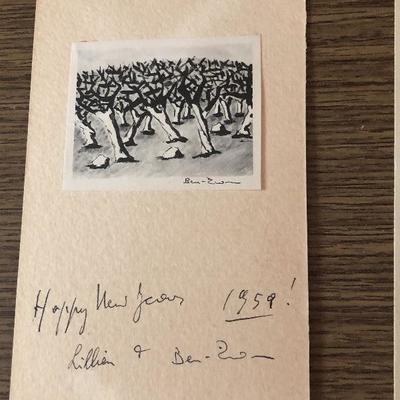 Ben-Zion
Happy New Year 1959!
Lillian & Ben-Zion